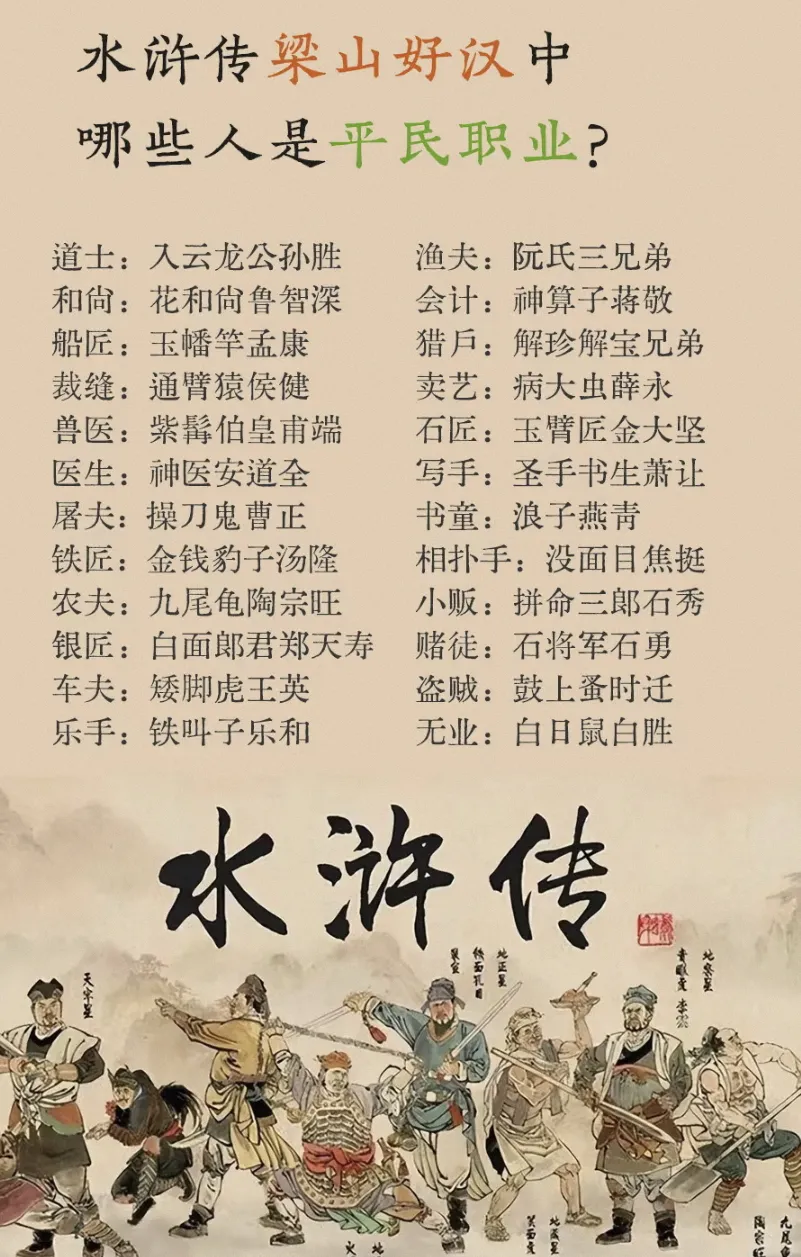 水浒传梁山好汉中
哪些人是平民职业?
道士：入云龙公孙胜
和尚：花和尚鲁智深
船匠：玉幡竿孟康
裁缝：通臂猿侯健
兽医：紫髯伯皇甫端
医生：神医安道全
屠夫：操刀鬼曹正
铁匠：金钱豹子汤隆
农夫：九尾龟陶宗旺
银匠：白面郎君郑天寿
车夫：矮脚虎王英
乐手：铁叫子乐和
渔夫：阮氏三兄弟
会计：神算子蒋敬
猎戶：解珍解宝兄弟
卖艺：病大虫薛永
石匠：玉臂匠金大坚
写手：圣手书生萧让
书童：浪子燕青
相扑手：没面目焦挺
小贩：拼命三郎石秀
赌徒：石将军石勇
盗贼：鼓上蚤时迁
无业：白日鼠白胜
水浒传
天牢星
地正星
铁面孔目
裴宣
地察星
青眼虎 李云
笑面虎
九尾
陶宗旺
火 地